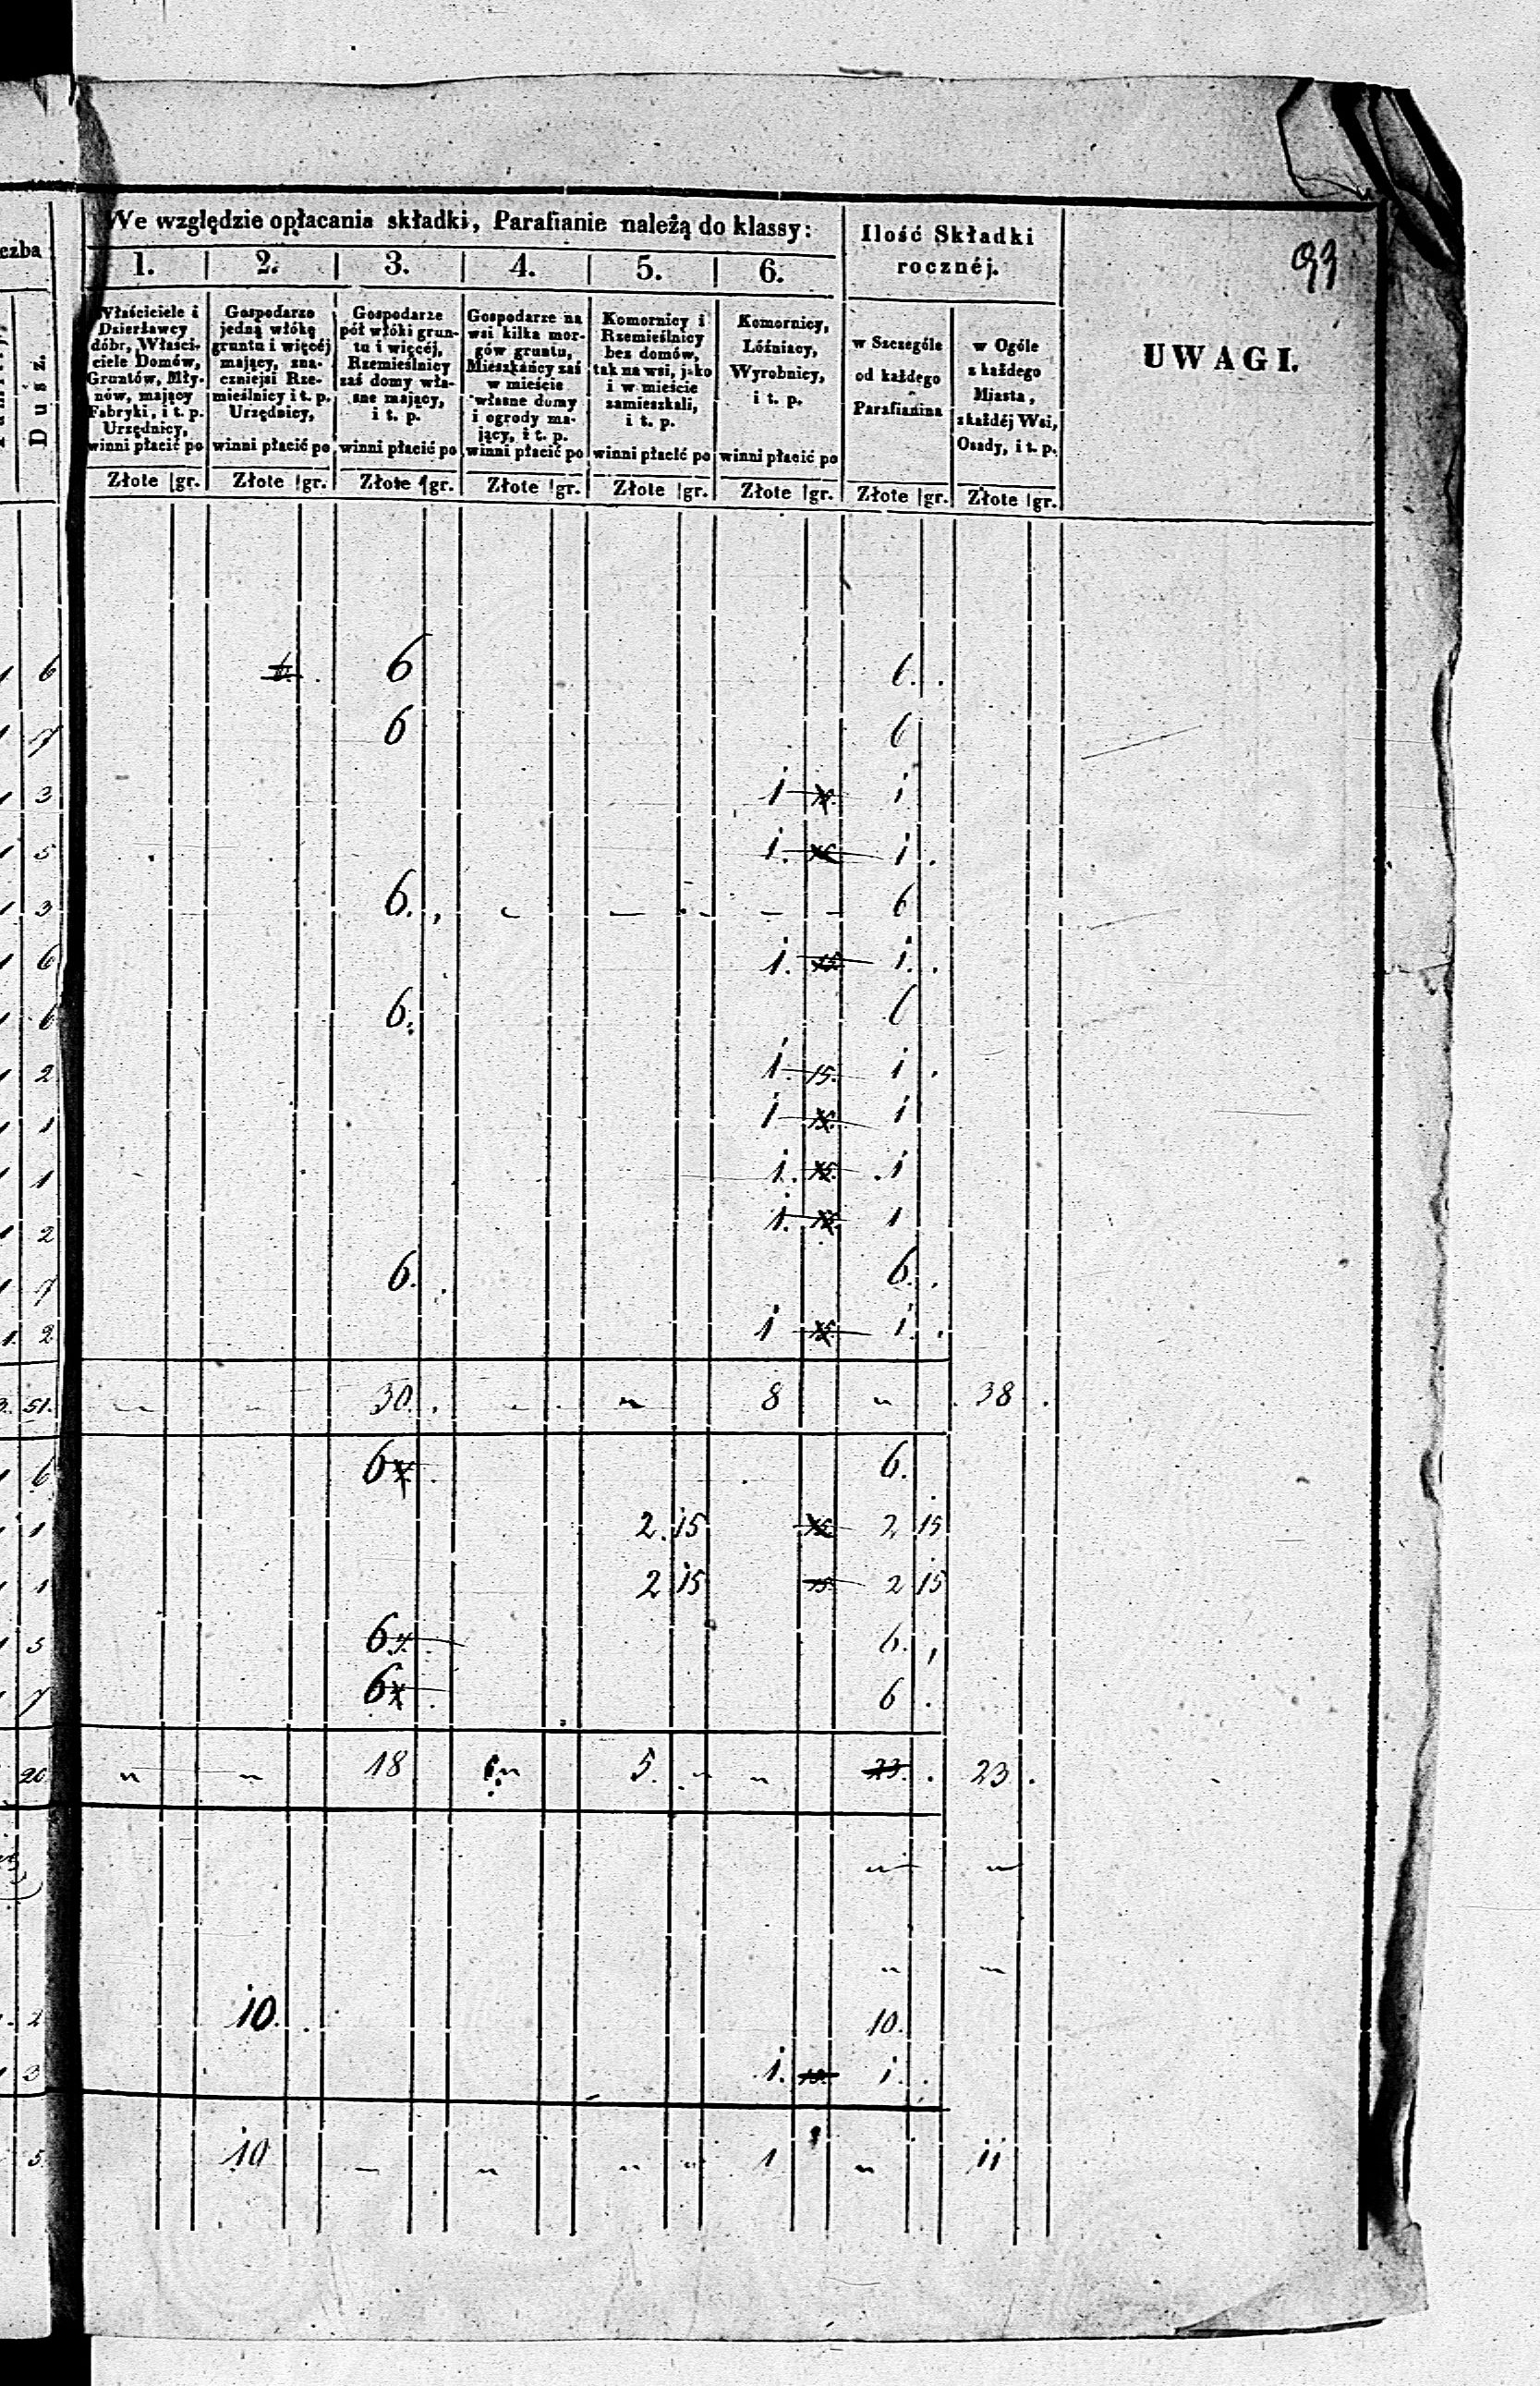 We względzie opłacania składki, Parafianie należą do klassy:
Ilość Składki
rocznéj.
93
czba
1. 2. 3. 4. 5. 6.
Właściciele i
Dzierżawcy
dóbr, Właści-
ciele Domów,
Gruntów, Mły-
nów, mający
Fabryki, i t. p.
Urzędnicy,
winni płacić po
Gospodarze
jedną włókę
gruntu i więcéj
mający, zna-
czniejsi Rze-
mieślnicy i t. p.
Urzędnicy,
winni płacić po
Gospodarze
pół włóki grun-
tu i więcéj,
Rzemieślnicy
zaś domy wła-
sne mający,
i t. p.
winni płacić po
Gospodarze na
wsi kilka mor-
gów gruntu,
Mieszkańcy zaś
w mieście
własne domy
i ogrody ma-
jący, i t. p.
winni płacić po
Komornicy i
Rzemieślnicy
bez domów,
tak na wsi, jako
i w mieście
zamieszkali,
i t. p.
winni płacić po
Komornicy,
Lóźniacy,
Wyrobnicy,
i t. p.
winni płacić po
w Szczególe
od każdego
Parafianina
w Ogóle
z każdego
Miasta,
z każdéj Wsi,
Osady, i t. p.
UWAGI.
Dusz.
Złote gr. Złote gr. Złote gr. Złote gr. Złote gr. Złote gr. Złote gr. Złote gr.
1 6 6 6.
1 7 6 6
1 3 1 1
1 5 1. 1.
1 3 6. 6
1 6 1. 1.
1 6 6. 6
1 2 1. 15. 1
1 1 1 15. 1
1 1 1. 15. 1
1 2 1. 15. 1
1 7 6. 6.
1. 2 1 15 1.
51. 30. 8 38
1 6 6 6.
1 1 2. 15 15 2 15
1 1 2 15 15 2 15
1 5 6 6.
1 7 6 6
20 18 5. 23. 23
2 10. 10.
1 3 1. 1.
5 10 1 11